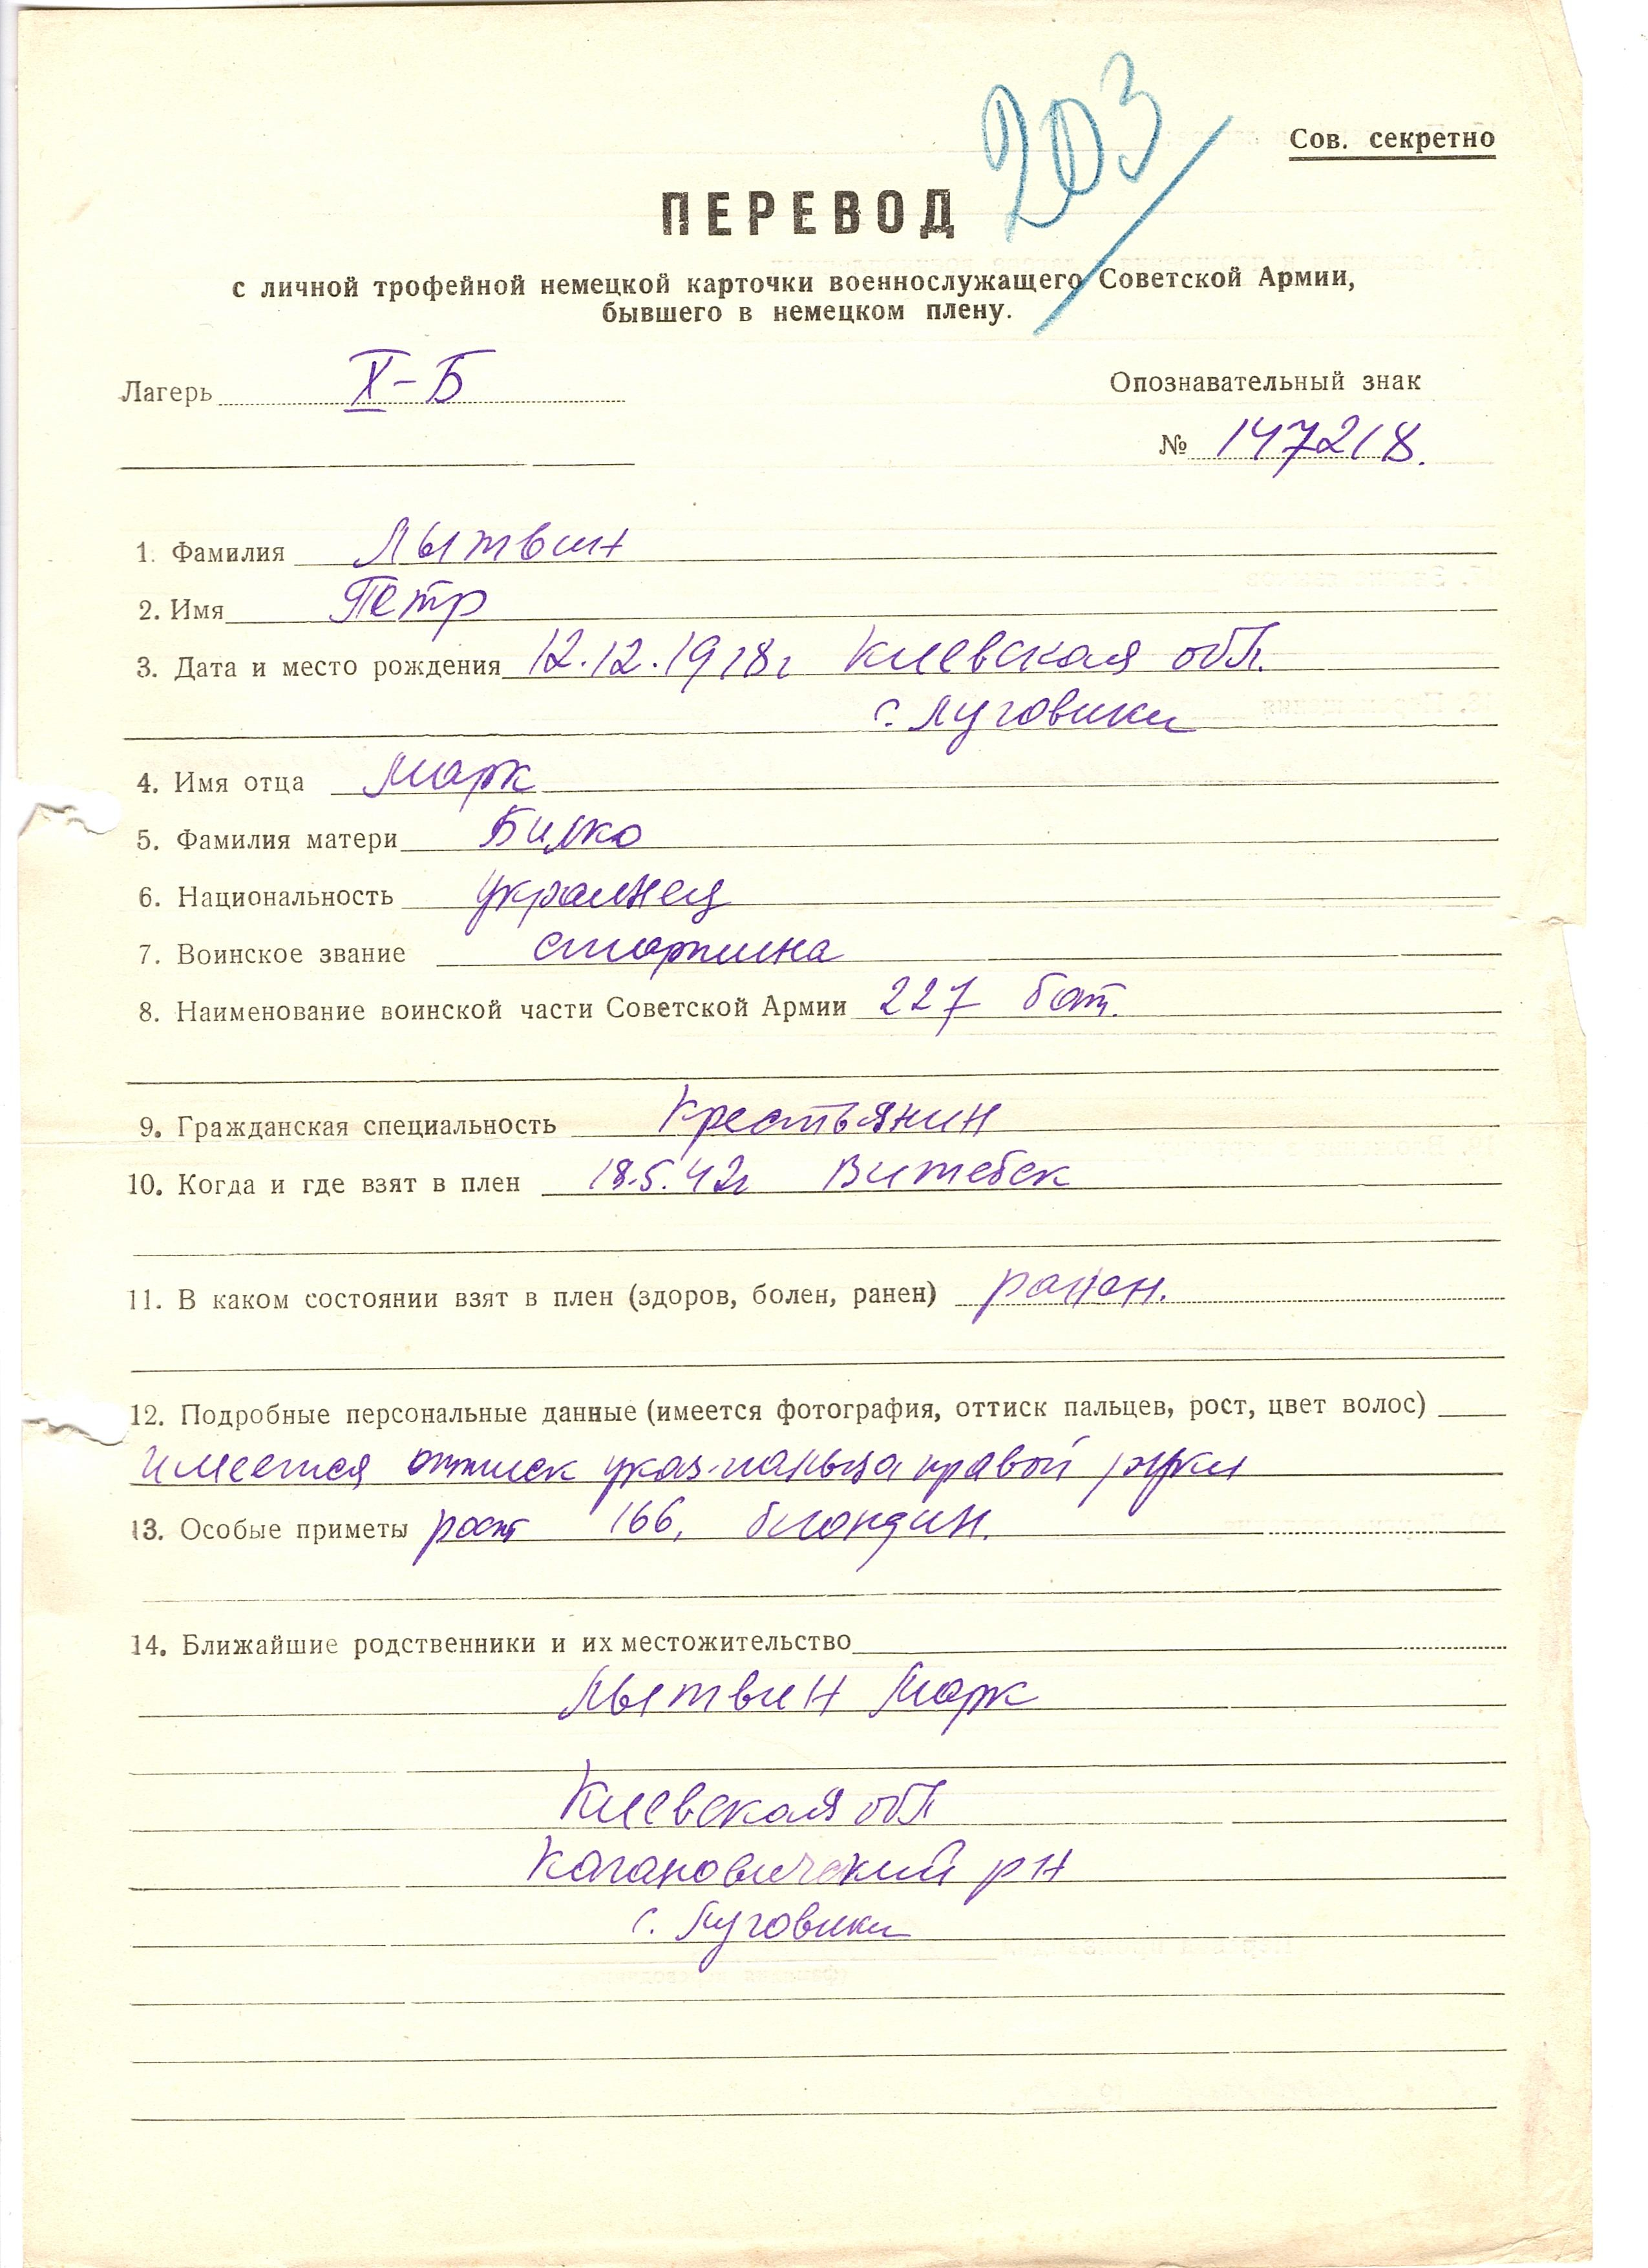 203
Сов. секретно
ПЕРЕВОД
с личной трофейной немецкой карточки военнослужащего Советской Армии,
бывшего в немецком плену.
Лагерь X-Б
Опознавательный знак
№ 147218.
1. Фамилия Лытвин
2. Имя Петр
3. Дата и место рождения 12.12.1918г Киевская обл.
с. Луговики
4. Имя отца Марк
5. Фамилия матери Билко
6. Национальность украинец
7. Воинское звание старшина
8. Наименование воинской части Советской Армии 227 бат.
9. Гражданская специальность Крестьянин
10. Когда и где взят в плен 18.5.42г Витебск
11. В каком состоянии взят в плен (здоров, болен, ранен) ранен.
12. Подробные персональные данные (имеется фотография, оттиск пальцев, рост, цвет волос)
имеется оттиск указ. пальца правой руки
13. Особые приметы рост 166, блондин.
14. Ближайшие родственники и их местожительство
Лытвин Марк
Киевская обл
Кагановический рн
с. Луговики